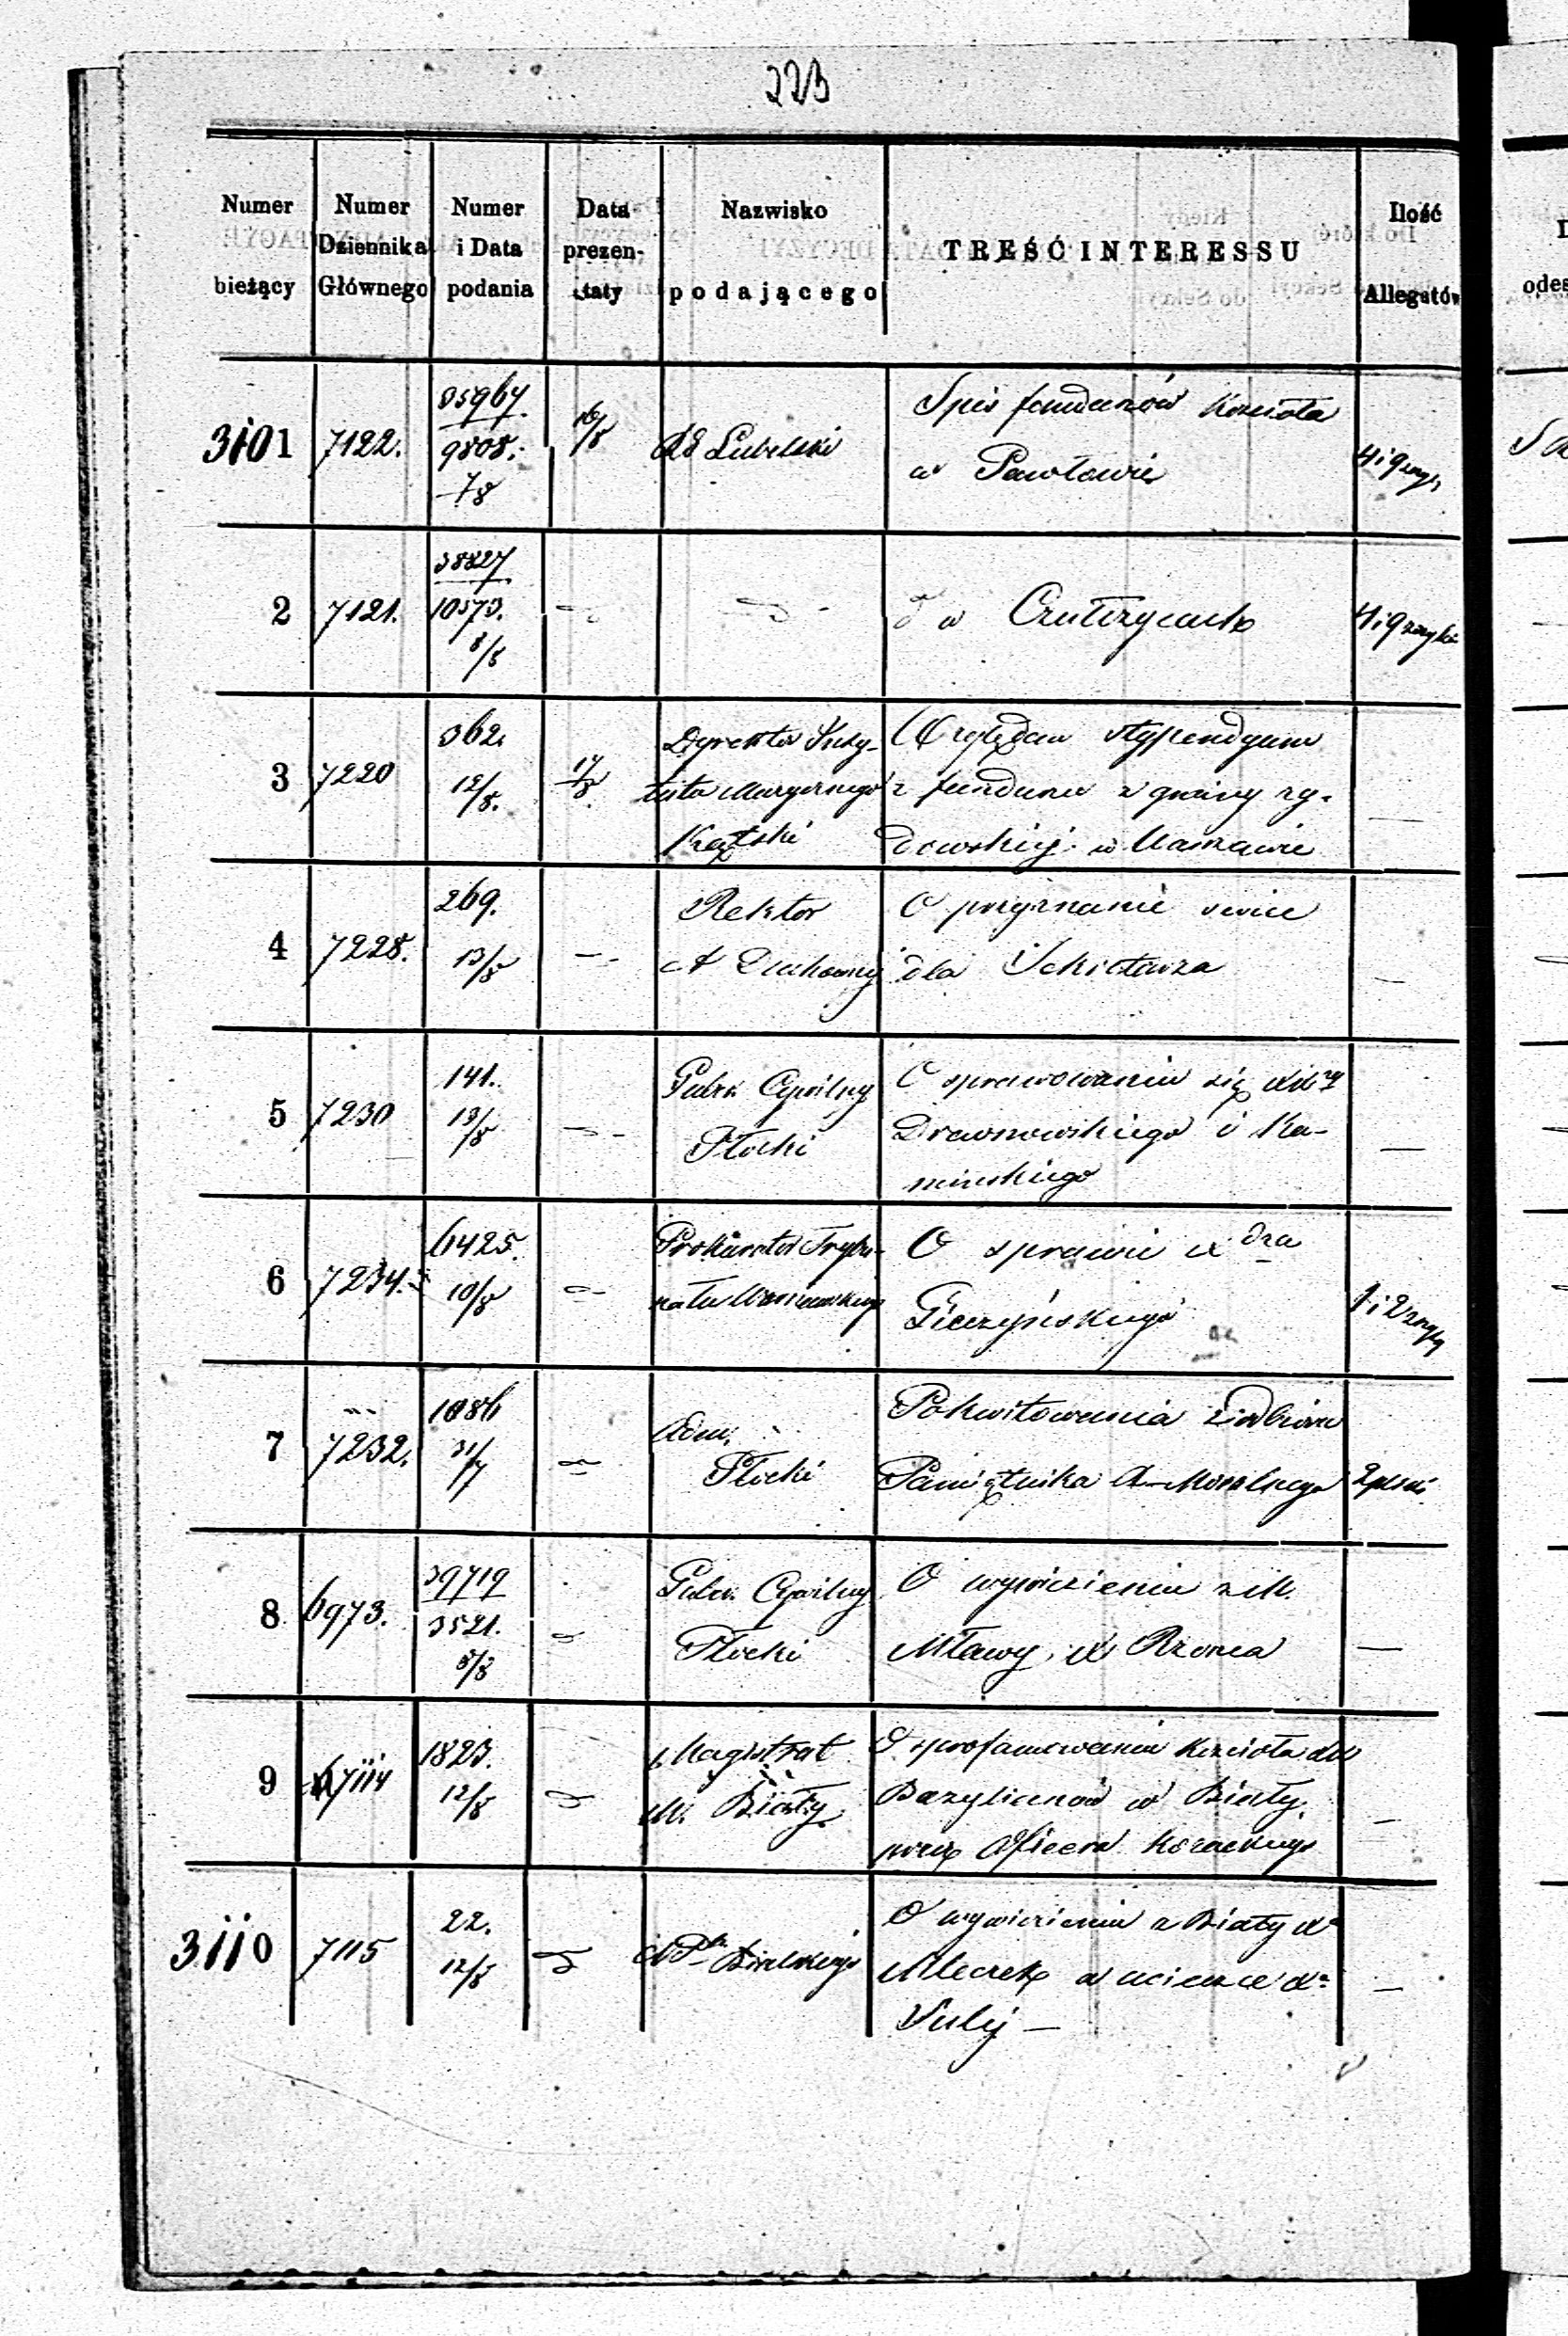 223
Numer bieżący
Numer Dziennika Głównego
Numer i Data podania
Data prezentaty
Nazwisko podającego
TREŚĆ INTERESSU
Ilość Allegatów
3101 7122. 35967 9808. 7/8 16/8 Rd Lubelski
Spis funduszów Kościoła
w Pawłowie
4 i 9
2 7121. 38827 10573. 8/8
d w Czułczycach
4 i 9
3 7220 362. 12/8. 17/8 Dyrektor Insty-
tutu Muzycznego
Kątski
Względem stypendyum
z funduszu z gminy ży-
dowskiej w Warszawie
4 7228. 269. 13/8 Rektor
A Duchownej
O przyznanie
dla Sekretarza
5 7230 141. 13/8 Gubr. Cywilny
Płocki
O sprawowaniu się
Drewnowskiego i Ka-
mińskiego
6 7234. 6425. 10/8 Prokurator Trybu-
nału Warszawskiego
O sprawie x dza
1 i 2
7 7232. 1086 31/7 Adm.
Płocki
Pokwitowania z odbioru
Pamiętnika
2
8 6973. 39719 3521. 8/8 Gubr. Cywilny
Płocki
O wywiezieniu z M.
Mławy, x Rzońca
9 7114 1823. 12/8 Magistrat
M. Biały
O sprofanowaniu Kościoła XX
Bazylianów w Biały,
przez Oficera Kozackiego
3110 7115 22. 12/8 Bialskiego
O wywiezieniu z Biały Xa
Mleczek a ucieczce Xa